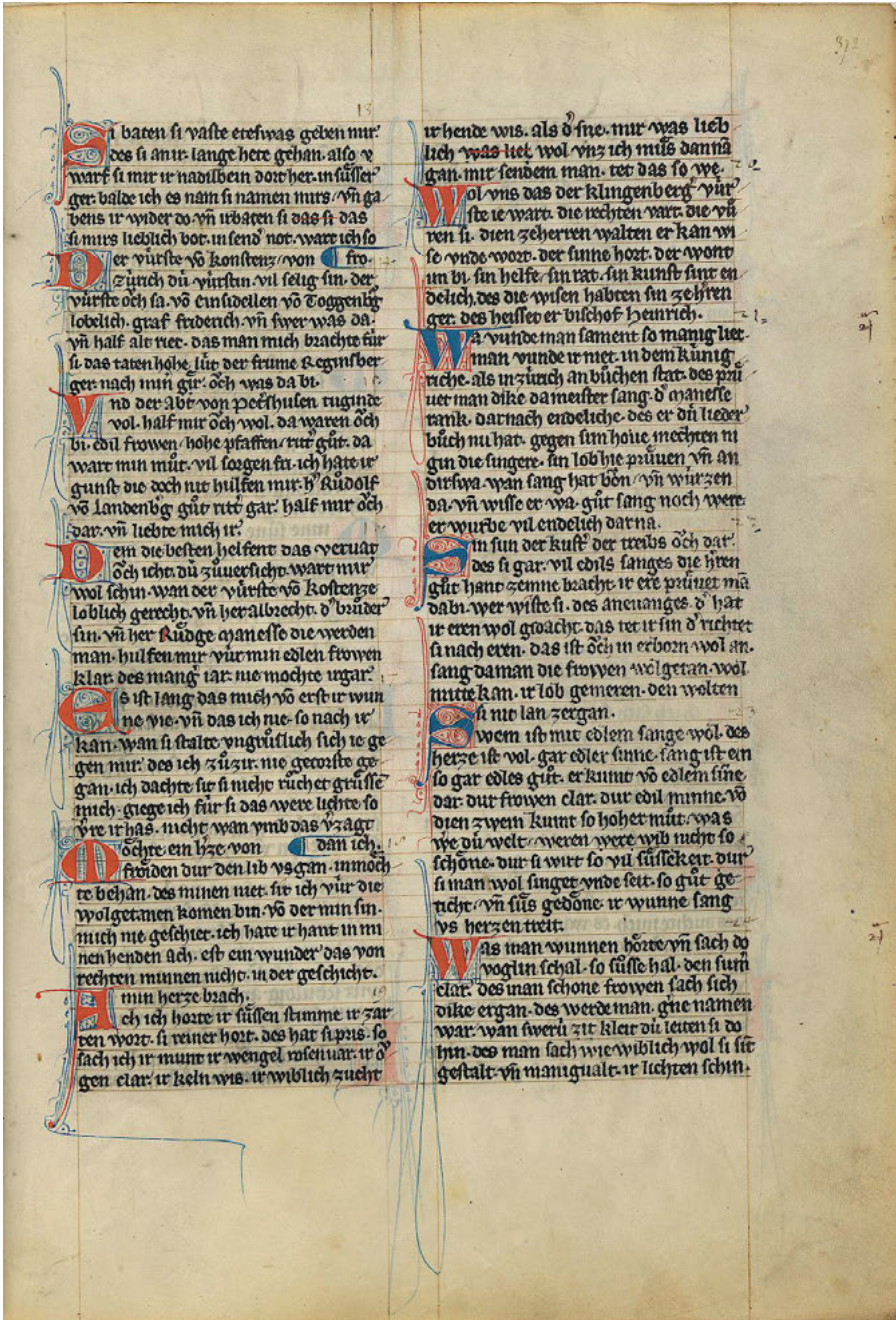 372
13
Si baten si vaste eteswas geben mir
des si an ir. lange hete gehan. also v̾
warf si mir ir nadilbein dort her. in sůsser
ger. balde ich es nam si namen mirs. vn̄ ga
bens ir wider do. vn̄ irbaten si das si das
si mirs lieblich bot. in send̾ not. wart ich so
Der vúrste vō Konstenz. von ¶ fro.
Zúrich dú vúrstin. vil selig sin. der
vúrste och sa. vō einsidellen vō Toggenb̾g
lobelich. graf friderich. vn̄ swer was da.
vn̄ half alt riet. das man mich brachte fúr
si. das taten hohe lút der frume Reginsber
ger. nach min gir. ŏch was da bi.
Vnd der abt von Petershusen tuginde
vol. half mir ŏch wol. da waren ŏch
bi. edil frowen. hohe pfaffen. ritt̾ gůt. da
wart min můt. vil sorgen fri. ich hate ir
gunst die doch nit hulfen mir. h̾ Růdolf
vō Landenb̾g gůt ritt̾ gar. half mir ŏch
dar. vn̄ liebte mich ir.
Dem die besten helfent das veruat
ŏch icht. dú zůuersicht. wart mir
wol schin. wan der vúrste vō Kostenze
loblich gerecht. vn̄ her albrecht. d̾ brůder
sin. vn̄ her Růdge Manesse die werden
man. hulfen mir vúr min edlen frowen
klar. des mang iar. nie mochte irgar.
Es ist lang das mich vō erst ir wun
ne vie. vn̄ das ich nie. so nach ir
kan. wan si stalte vngrůslich sich ie ge
gen mir. des ich zů zir. nie getorste ge
gan. ich dachte sit si nicht růchet grůssē
mich. giege ich fúr si das were lichte so
v̾re ir has. nicht wan vmb das v̾zagt
Mŏchte ein h̾ze von ¶ dan ich.
frŏiden dur den lib vs gan. in mŏch
te behan. des minen niet. sit ich vúr die
wolgetanen komen bin. vō der min sin.
mich nie geschiet. ich hate ir hant in mi
nen henden ach. est ein wunder das von
rechten minnen nicht. in der geschicht.
min herze brach.
Ach ich horte ir sůssen stimme ir zar
ten wort. si reiner hort. des hat si pris. so
sach ich ir munt ir wengel rosenuar. ir ŏ
gen clar. ir keln wis. ir wiblich zucht
ir hende wis. als d̾ sne. mir was lieb
lich was liet wol vnz ich můs dannā
gan. mir sendem man. tet das so we.
Wol vns das der Klingenberg vúr
ste ie wart. die rechten vart. die vů
ren si. dien ze herren walten er kan wi
se vnde wort. der sinne hort. der wont
im bi. sin helfe. sin rat. sin kunst sint en
delich. des die wisen habten sin ze hren
ger. des heisset er bischof Heinrich.
Wa vunde man sament so manig liet.
man vunde ir niet. in dem kúnig
riche. als in zúrich an bůchen stat. des prů
uet man dike da meister sang. d̾ Manesse
rank. dar nach endeliche. des er dú lieder
bůch nu hat. gegen sim houe mechten ni
gin die singere. sin lob hie průuen vn̄ an
dirswa. wan sang hat bŏn. vn̄ wúrzen
da. vn̄ wisse er wa. gůt sang noch were.
er wurbe vil endelich dar na.
Sin sun der kust̾ der treibs ŏch dar.
des si gar. vil edils sanges die h̾ren
gůt hant zemne bracht. ir ere průuet mā
dabi. wer wiste si. des aneuanges. d̾ hat
ir eren wol gdacht. das tet ir sin d̾ richtet
si nach eren. das ist ŏch in erborn wol an.
sang da man die frowen wolgetan. wol
mitte kan. ir lob gemeren. den wolten
si nit lan zergan.
Swem ist mit edlem sange wol. des
herze ist vol. gar edler sinne. sang ist ein
so gar edles gůt. er kumt vō edlem sine
dar. dur frowen clar. dur edil minne. vō
dien zwein kumt so hoher můt. was
we dú welt. weren were wib nicht so
schone. dur si wirt so vil sůssekeit. dur
si man wol singet vnde seit. so gůt ge
ticht. vn̄ sůs gedŏne. ir wunne sang
vs herzen treit.
Was man wunnen hŏrte vn̄ sach do
voglin schal. so sůsse hal. den sum̄
clar. des man schone frowen sach sich
dike ergan. des werde man. g̾ne namen
war. wan swerú zit kleit dú leiten si do
hin. des man sach wie wiblich wol si sit
gestalt. vn̄ manigualt. ir lichten schin.